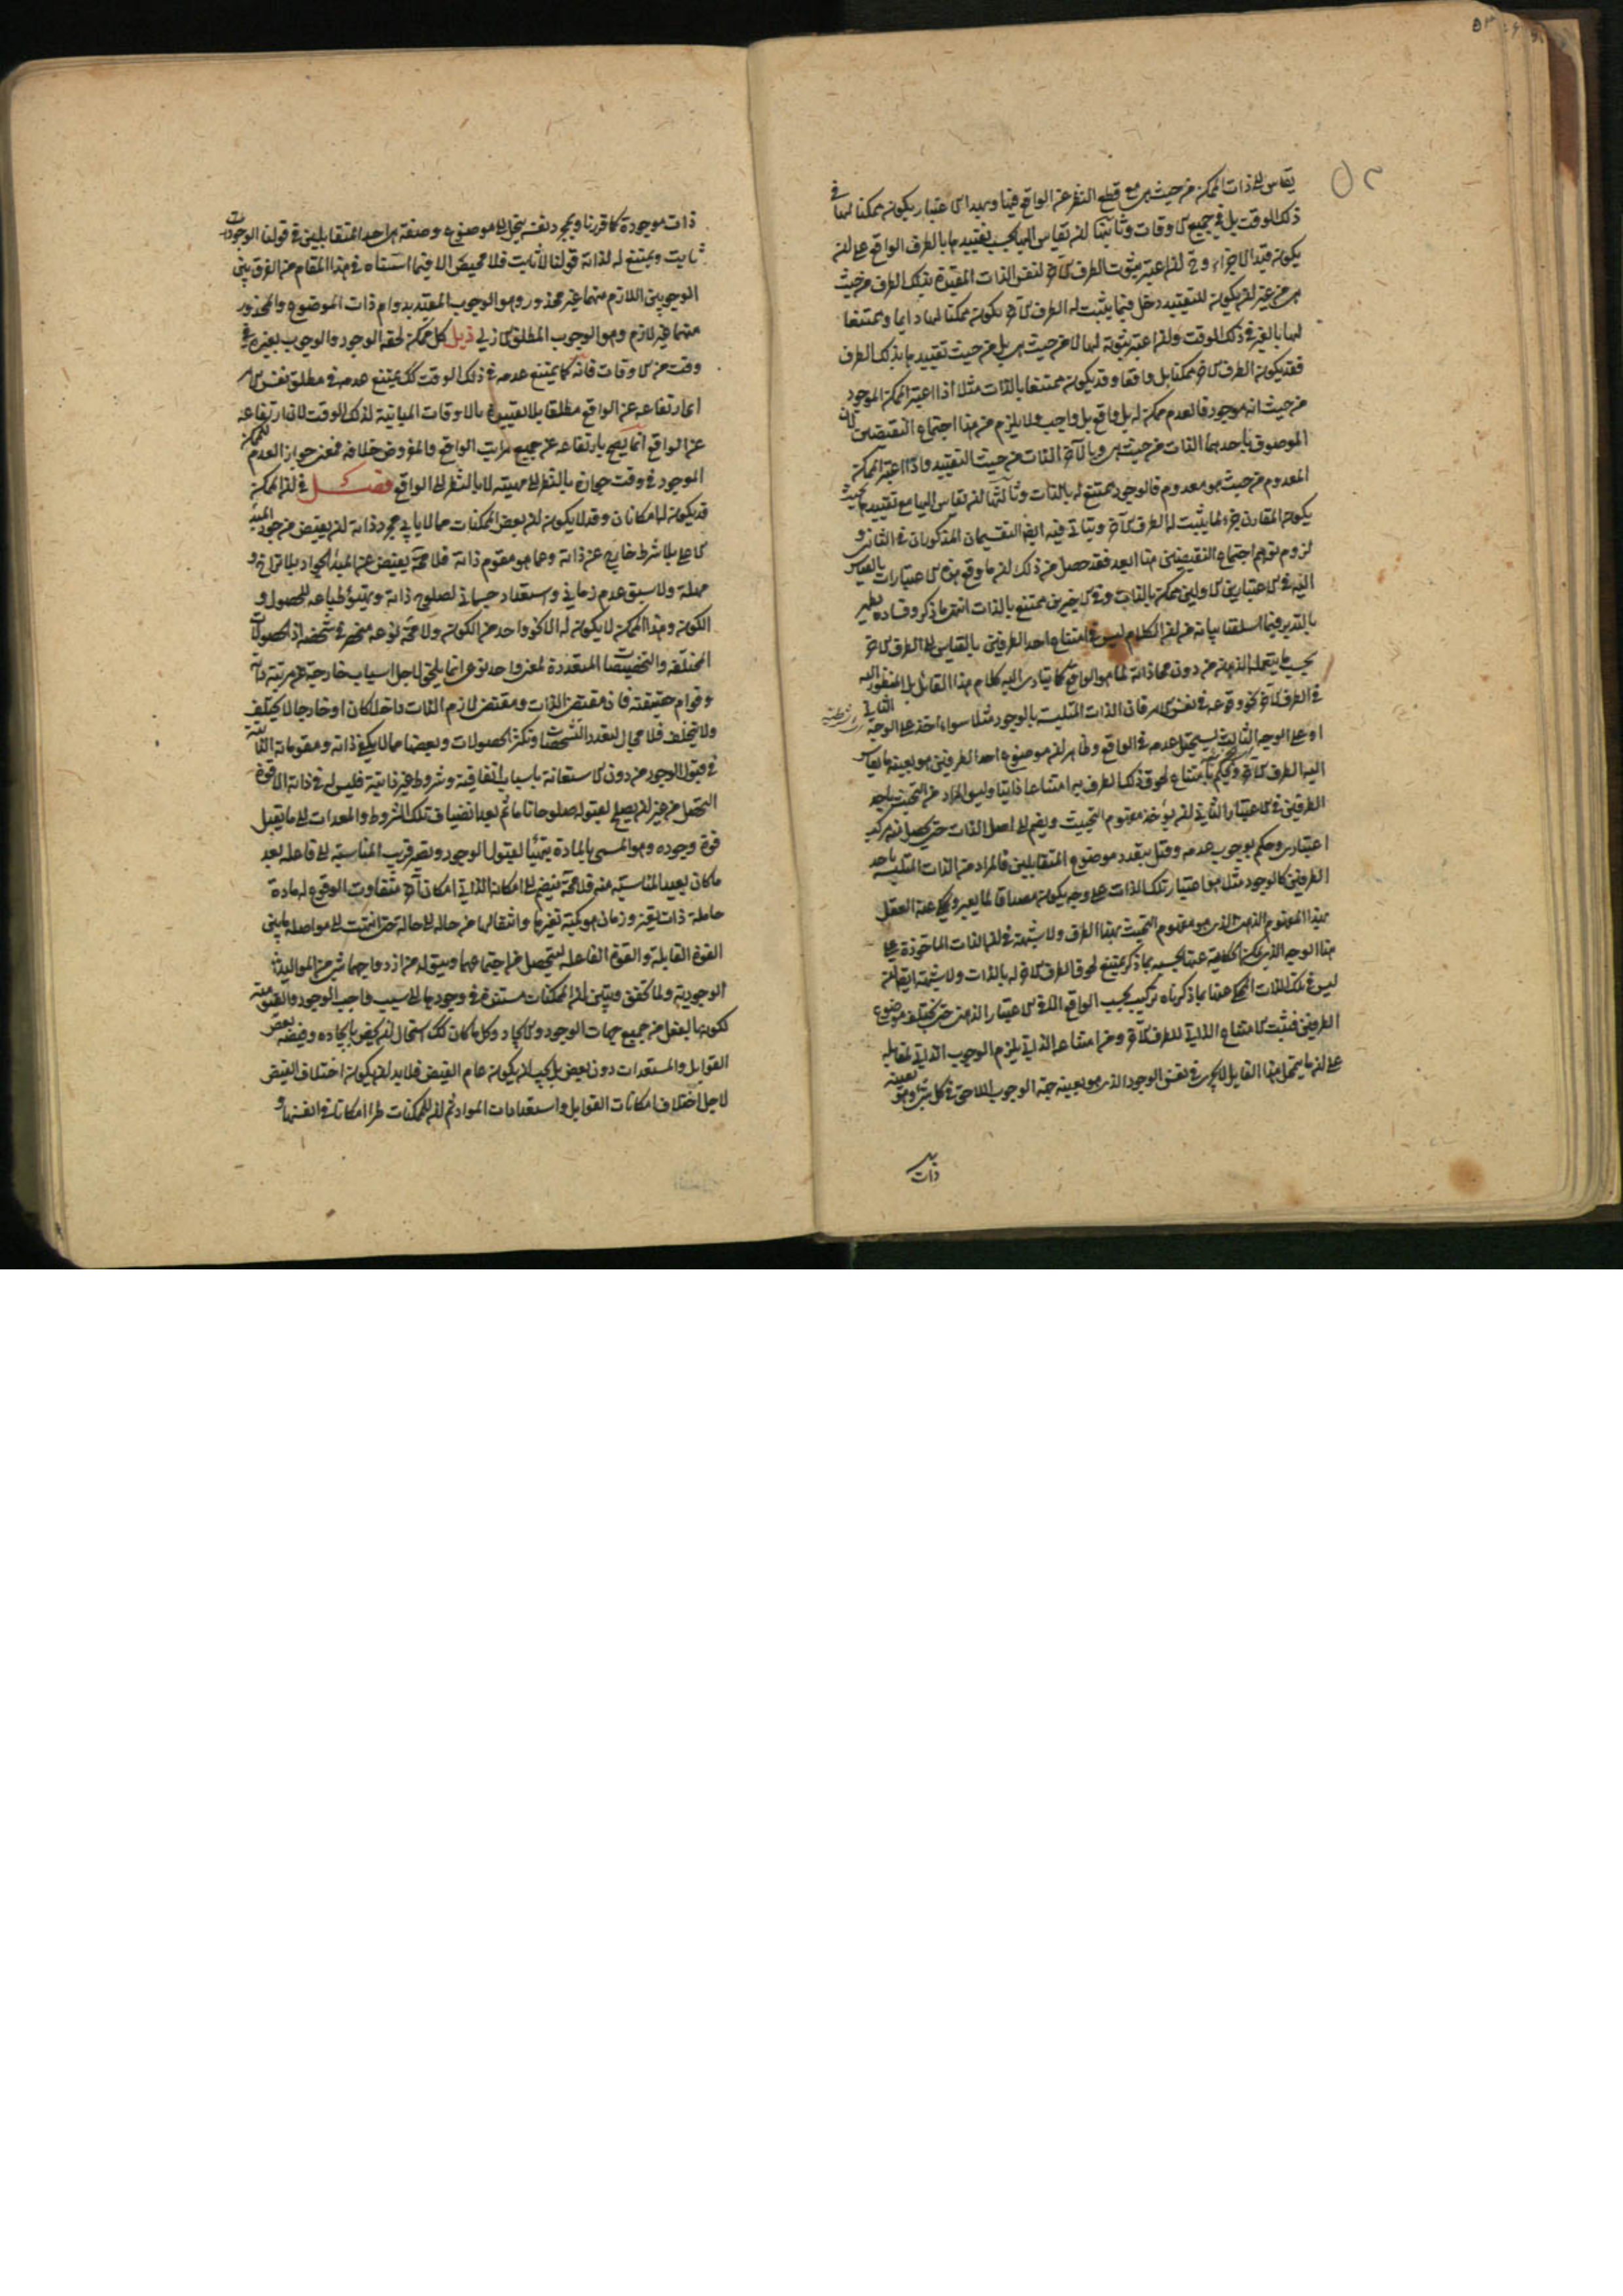 ۵۳
يقاس الى ذات الممكن من حيث هي مع قطع النظر عن الواقع فيها وبهذا الاعتبار يكون ممكنا لها في
ذلك الوقت بل في جميع الاوقات وثانيتها ان يقاس اليها بحسب تقييدها بالطرف الواقع على ان
يكون قيدا لا جزءا وح ان اعتبر ثبوت الطرف الآخر لنفس الذات المقيدة بذلك الطرف من حيث
هي من غير ان يكون للتقييد دخل فيما يثبت له الطرف الآخر يكون ممكنا لها دايما وممتنعا
لها بالغير في ذلك الوقت وان اعتبر ثبوته لها لا من حيث هي بل من حيث تقييدها بذلك الطرف
فقد يكون الطرف الآخر ممكنا بل واقعا وقد يكون ممتنعا بالذات مثلا اذا اعتبر الممكن الموجود
من حيث انه موجود فالعدم ممكن له بل واقع بل واجب ولا يلزم من هذا اجتماع النقيضين لان
الموصوف باحدهما الذات من حيث هي وبالآخر الذات من حيث التقييد واذا اعتبر الممكن
المعدوم من حيث هو معدوم فالوجود ممتنع له بالذات وثالثها ان يقاس اليها مع تقييدها بحيث
يكون المقارن جزء لما يثبت له الطرف الآخر ويتأتى فيه ايضا التقسيمان المذكوران في الثاني و
لزوم توهم اجتماع النقيضين هنا ابعد فقد حصل من ذلك ان ما وقع من الاعتبارات بالقياس
اليه في الاعتبارين الاولين ممكن بالذات وفي الاخيرين ممتنع بالذات انتهى ما ذكر وفساده يظهر
بالتدبر فيما اسلفنا بيانه من ان الكلام ليس في امتناع احد الطرفين بالقياس الى الطرف الآخر
بحسب ما يتعمله الذهن من دون محاذاته لما هو الواقع كما يتادى اليه كلام هذا القائل بل المنظور اليه
في الطرف الآخر نحو وقوعه في نفس الامر فان الذات المتلبسة بالوجود مثلا سواء اخذ على الوجه الثاني
او على الوجه الثالث يستحيل عدمه في الواقع وظاهر ان موضوع احد الطرفين هو بعينه ما يقاس
اليه الطرف الآخر ويحكم بامتناع لحوق ذلك الطرف به امتناعا ذاتيا وليس المراد من التحيث باحد
الطرفين في الاعتبار الثاني ان يؤخذ مفهوم التحيث ويضم الى اصل الذات حتى يحصل مركب
اعتباري وحكم بوجوب عدمه وقيل بتعدد موضوع المتقابلين فالمراد من الذات المتلبسة باحد
الطرفين كالوجود مثلا هو اعتبار تلك الذات على وجه يكون مصداقا لما يعبر ويحكى عنه العقل
بهذا المفهوم الذهني الذي هو مفهوم التحيث بهذا الطرف ولا شبهة في ان الذات الماخوذة على
هذا الوجه الذي يمكن الحكاية عنها بحسبه بما ذكر يمتنع لحوق الطرف الآخر له بالذات ولا شبهة ايضا انه
ليس في تلك الذات المحكي عنها بما ذكرناه تركيب بحسب الواقع الا في الاعتبار الذهني حتى يختلف موضوع
الطرفين فيثبت الامتناع الذاتي للطرف الآخر ومن امتناعه الذاتي يلزم الوجوب الذاتي لمقابله
على ان ما يتمحل هذا القايل لا يجري في نفس الوجود الذي هو بعينه جهة الوجوب اللاحق في كل شئ وهو بعينه
ذات
ذات موجودة كما قررنا وبمجرد نفسه ينحل الى موضوع وصفة هي احد المتقابلين في قولنا الوجود
ثابت ويمتنع له لذاته قولنا لا ثابت فلا محيص الا فيما اسسناه في هذا المقام من الفرق بين
الوجوبين اللازم منهما غير محذور وهو الوجوب المقيد بدوام ذات الموضوع والمحذور
منهما غير لازم وهو الوجوب المطلق الازلي ذيل كل ممكن لحقه الوجود والوجوب بغيره في
وقت من الاوقات فانه كما يمتنع عدمه في ذلك الوقت كك يمتنع عدمه في مطلق نفس الامر
اي ارتفاعه عن الواقع مطلقا بلا تقييده بالاوقات المباينة لذلك الوقت لان ارتفاعه
عن الواقع انما يصح بارتفاعه عن جميع مراتب الواقع والمفروض خلافه فمعنى جواز العدم للممكن
الموجود في وقت جوازه بالنظر الى مهيته لا بالنظر الى الواقع فصل في ان الممكن
قد يكون له امكانان وقد لا يكون ان بعض الممكنات مما لا يأبى مجرد ذاته ان يفيض من جود المبدء
الاعلى بلا شرط خارج عن ذاته وعما هو مقوم ذاته فلا محة يفيض عن المبدأ الجواد بلا تراخ و
مهلة ولا سبق عدم زماني واستعداد جسماني لصلوح ذاته وتهيؤ طباعه للحصول و
الكون وهذا الممكن لا يكون له الا كون واحد من الكون ولا محة نوعه منحصر في شخصه اذ الحصولات
المختلفة والتخصصات المتعددة لمعنى واحد نوعي انما يلحق لاجل اسباب خارجية عن مرتبة ذاته
وقوام حقيقته فان مقتضى الذات ومقتضى لازم الذات داخلا كان او خارجا لا يختلف
ولا يتخلف فلا مجال لتعدد التشخصات وتكثر الحصولات وبعضها مما لا يكفي ذاته ومقوماته الذاتية
في قبول الوجود من دون الاستعانة باسباب اتفاقية وشروط غير ذاتية فليس له في ذاته الا قوة
التحصل من غير ان يصلح لقبوله صلوحا تاما ثم بعد انضياف تلك الشروط والمعدات الى ما يقبل
قوة وجوده وهو المسمى بالمادة يتهيأ لقبول الوجود ويصير قريب المناسبة الى فاعله بعد
ما كان بعيد المناسبة منه فلا محة ينضم الى امكانه الذاتي امكان آخر متفاوت الوقوع له مادة
حاملة ذات تغير وزمان هو كمية تغيرها وانتقالها من حالة الى حالة حتى انتهت الى مواصلة ما بين
القوة القابلة والقوة الفاعلة ليتحصل من اجتماعهما ويتولد من ازدواجهما شئ من المواليد
الوجودية ولما تحقق وتبين ان الممكنات مستندة في وجودها الى سبب واجب الوجود والقيومية
لكونها بالفعل من جميع جهات الوجود والايجاد وكل ما كان كك استحال ان يخص بايجاده وفيضه بعض
القوابل والمستعدات دون بعض بل يجب ان يكون عام الفيض فلا بد ان يكون اختلاف الفيض
لاجل اختلاف امكانات القوابل واستعدادات المواد ثم ان للممكنات طرا امكانا في انفسها و